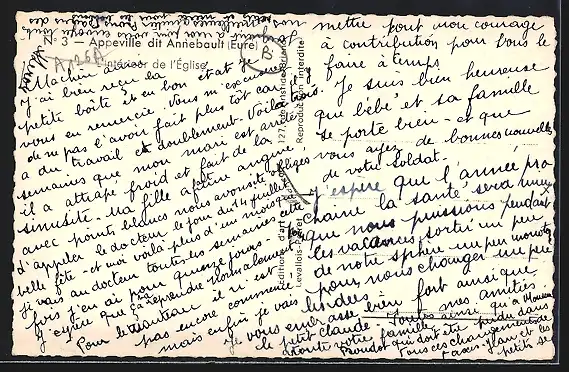 N° 3 — Appeville dit Annebault (Eure)
Intérieur de l'Église
A 26
B
J'ai bien reçu la
petite boîte et en bon état
vous en remercie. Vous m'excuserez
de ne pas l'avoir fait plus tôt car j'
a du travail et doublement. Voilà trois
semaines que mon mari est arrêté
il a attrapé froid et fait de la
sinusite. Ma fille a fait une angine
avec points blancs nous avons été obligés
d'appeler le docteur le jour du 14 juillet
belle fête - et moi voilà plus d'un mois que
je vais au docteur toutes les semaines cette
fois j'en ai pour quinze jours.
J'espère que ça reprendre normalement
Pour le manteau il n'est
pas encore commencé
mais enfin je vais
mettre tout mon courage
à contribution pour vous le
faire à temps.
Je suis bien heureuse
que bébé et sa famille
se porte bien - et que
vous ayez de bonnes nouvelles
de votre soldat.
J'espère que l'année pro
chaine la santé sera mieux
que nous puissions pendant
les vacances sortir un peu
de notre sphère un peu
pour nous changer un peu
les idées
Je vous embrasse bien fort ainsi que
le petit Claude. Toutes mes amitiés
à toute votre famille ainsi qu'à Monsieur
qui doit être perdu dans
tous ces changements
et les
petits se
Éditions d'art
Levallois-Perret
127, rue Aristide-Briand
Reproduction interdite